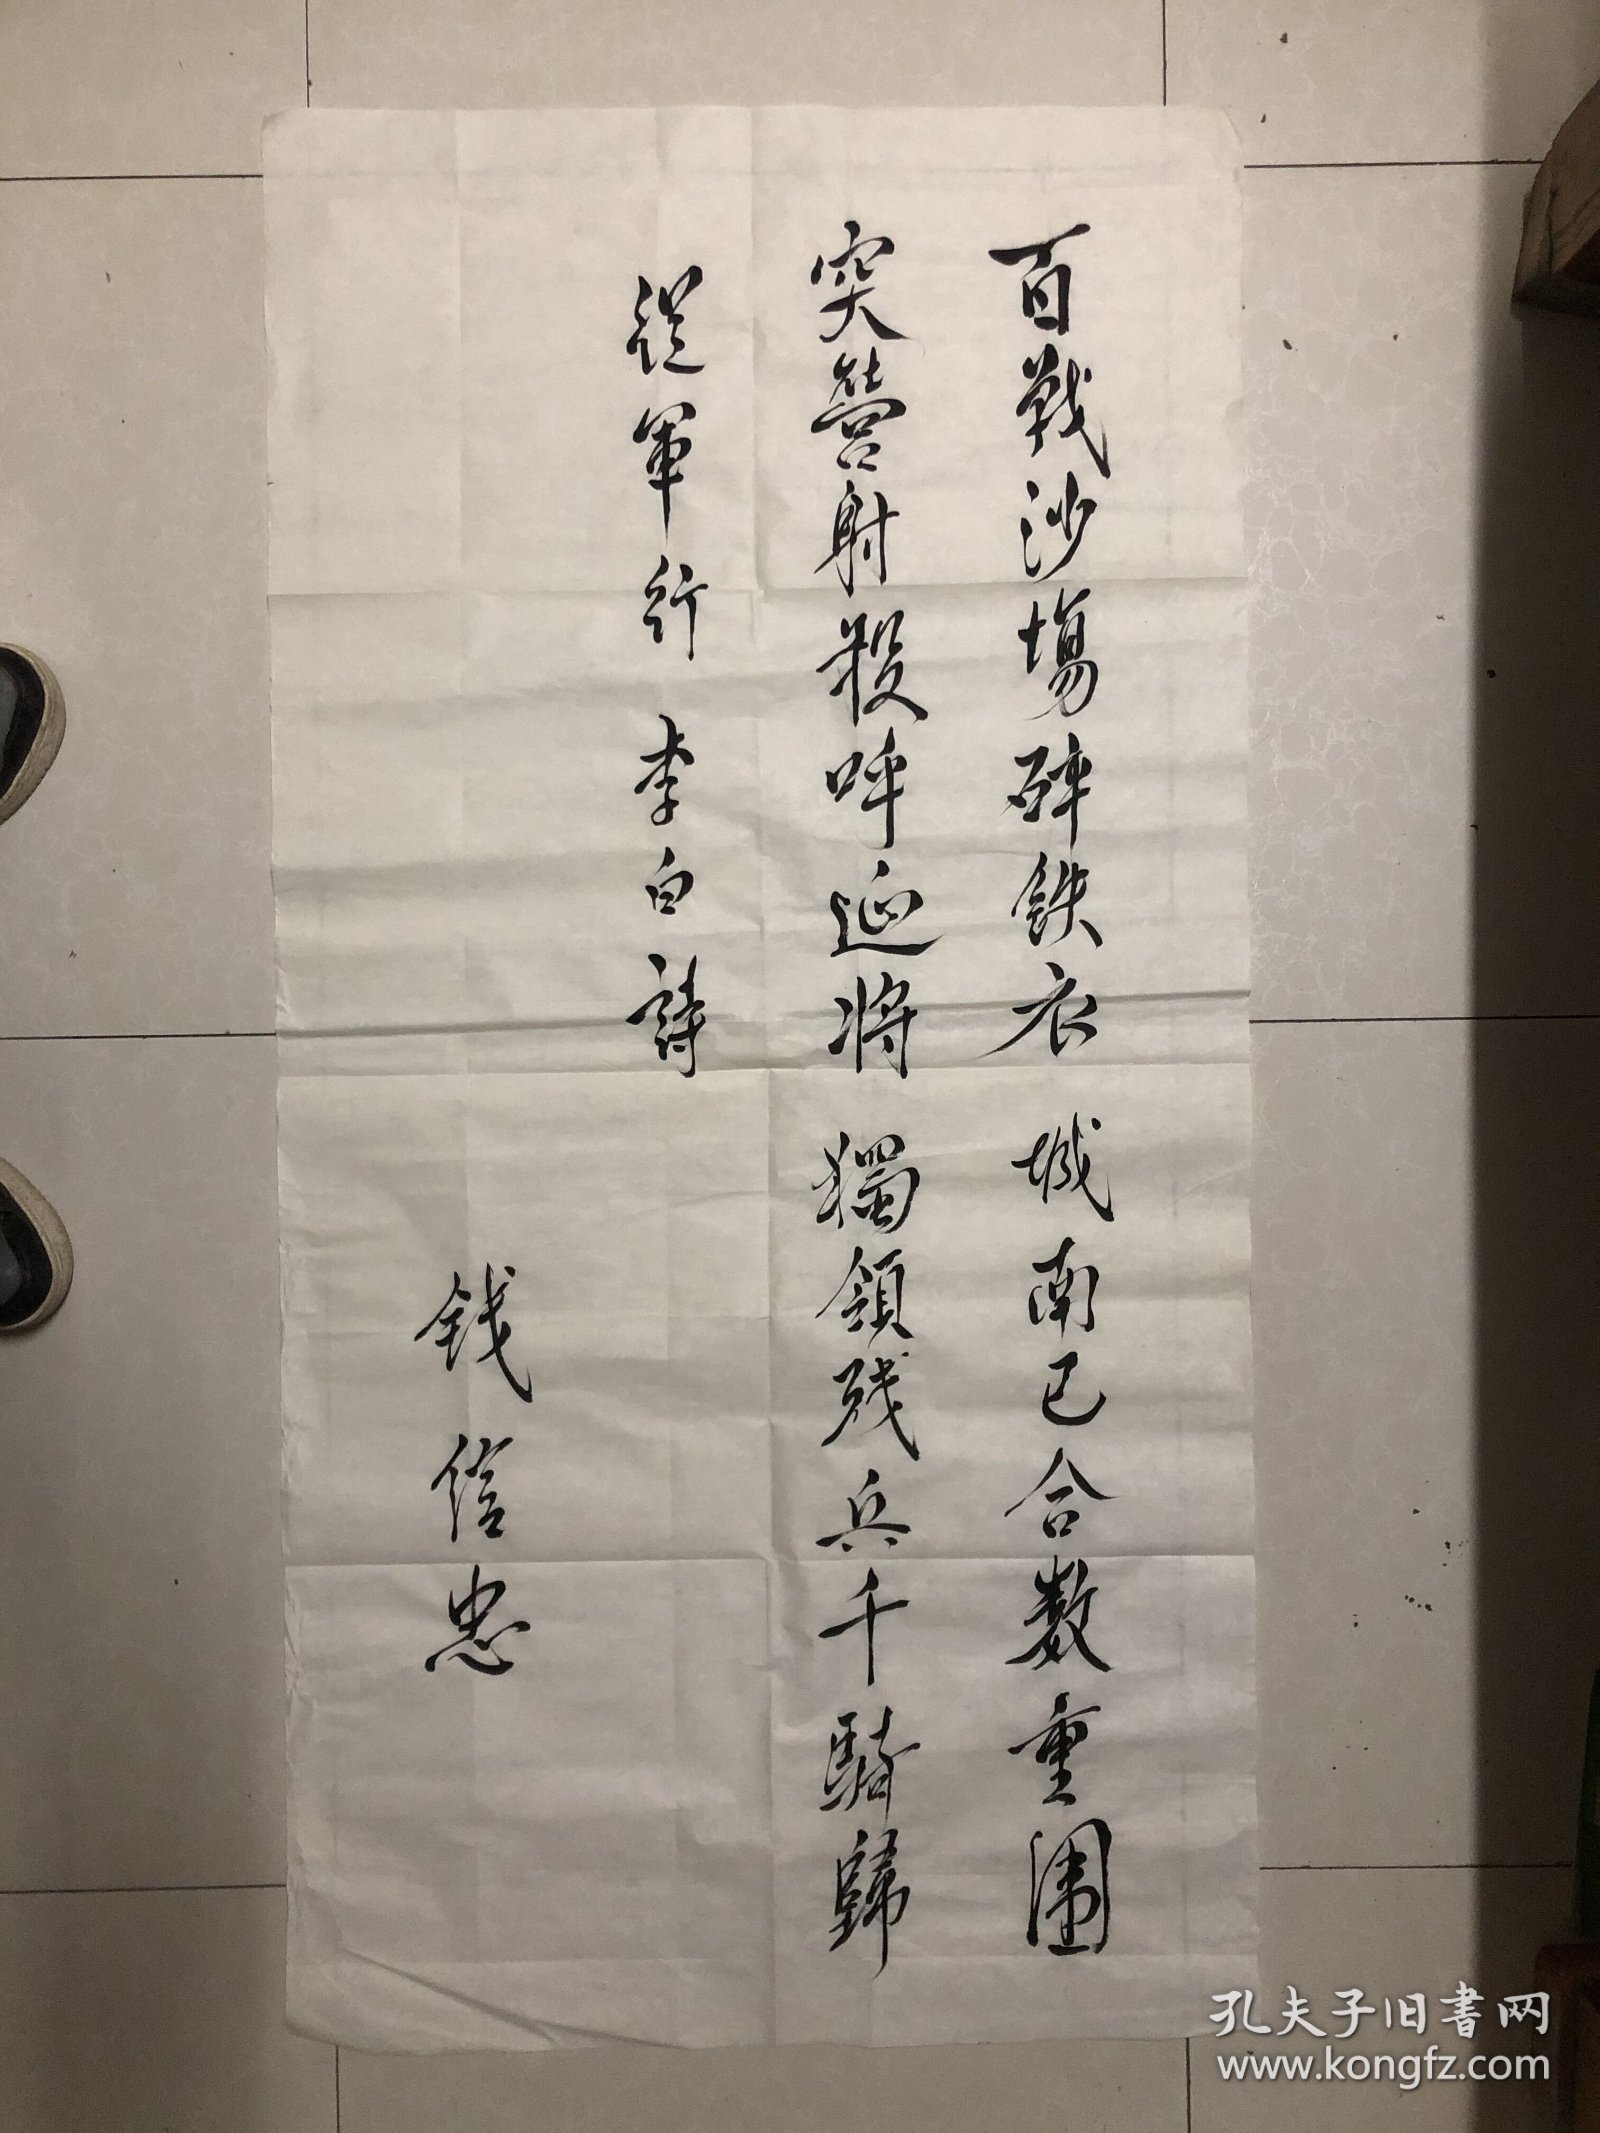 百戰沙塲碎鉄衣 城南已合数重圍
突營射殺呼延将 獨領残兵千騎歸
從軍行 李白詩
钱信忠
孔夫子旧書网
www.kongfz.com